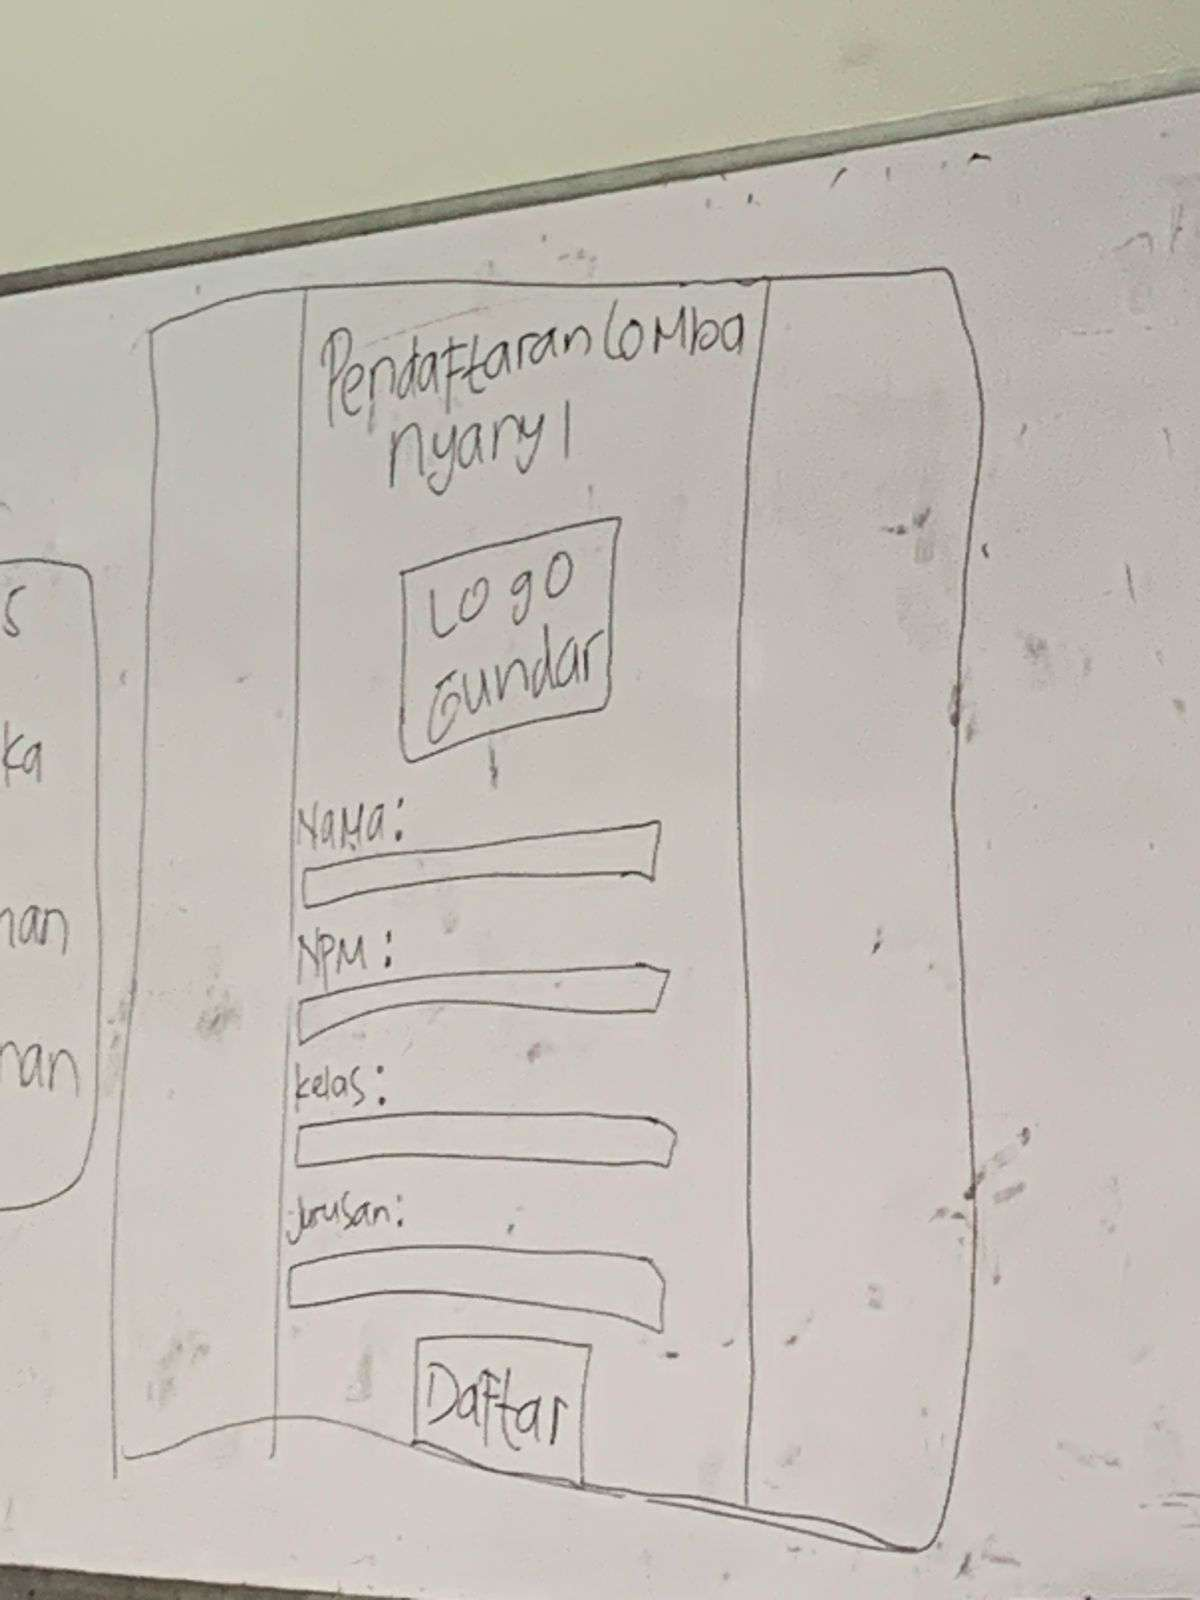 Pendaftaran Lomba
nyanyi
Logo
Gundar
Nama:
NPM:
Kelas:
Jurusan:
Daftar